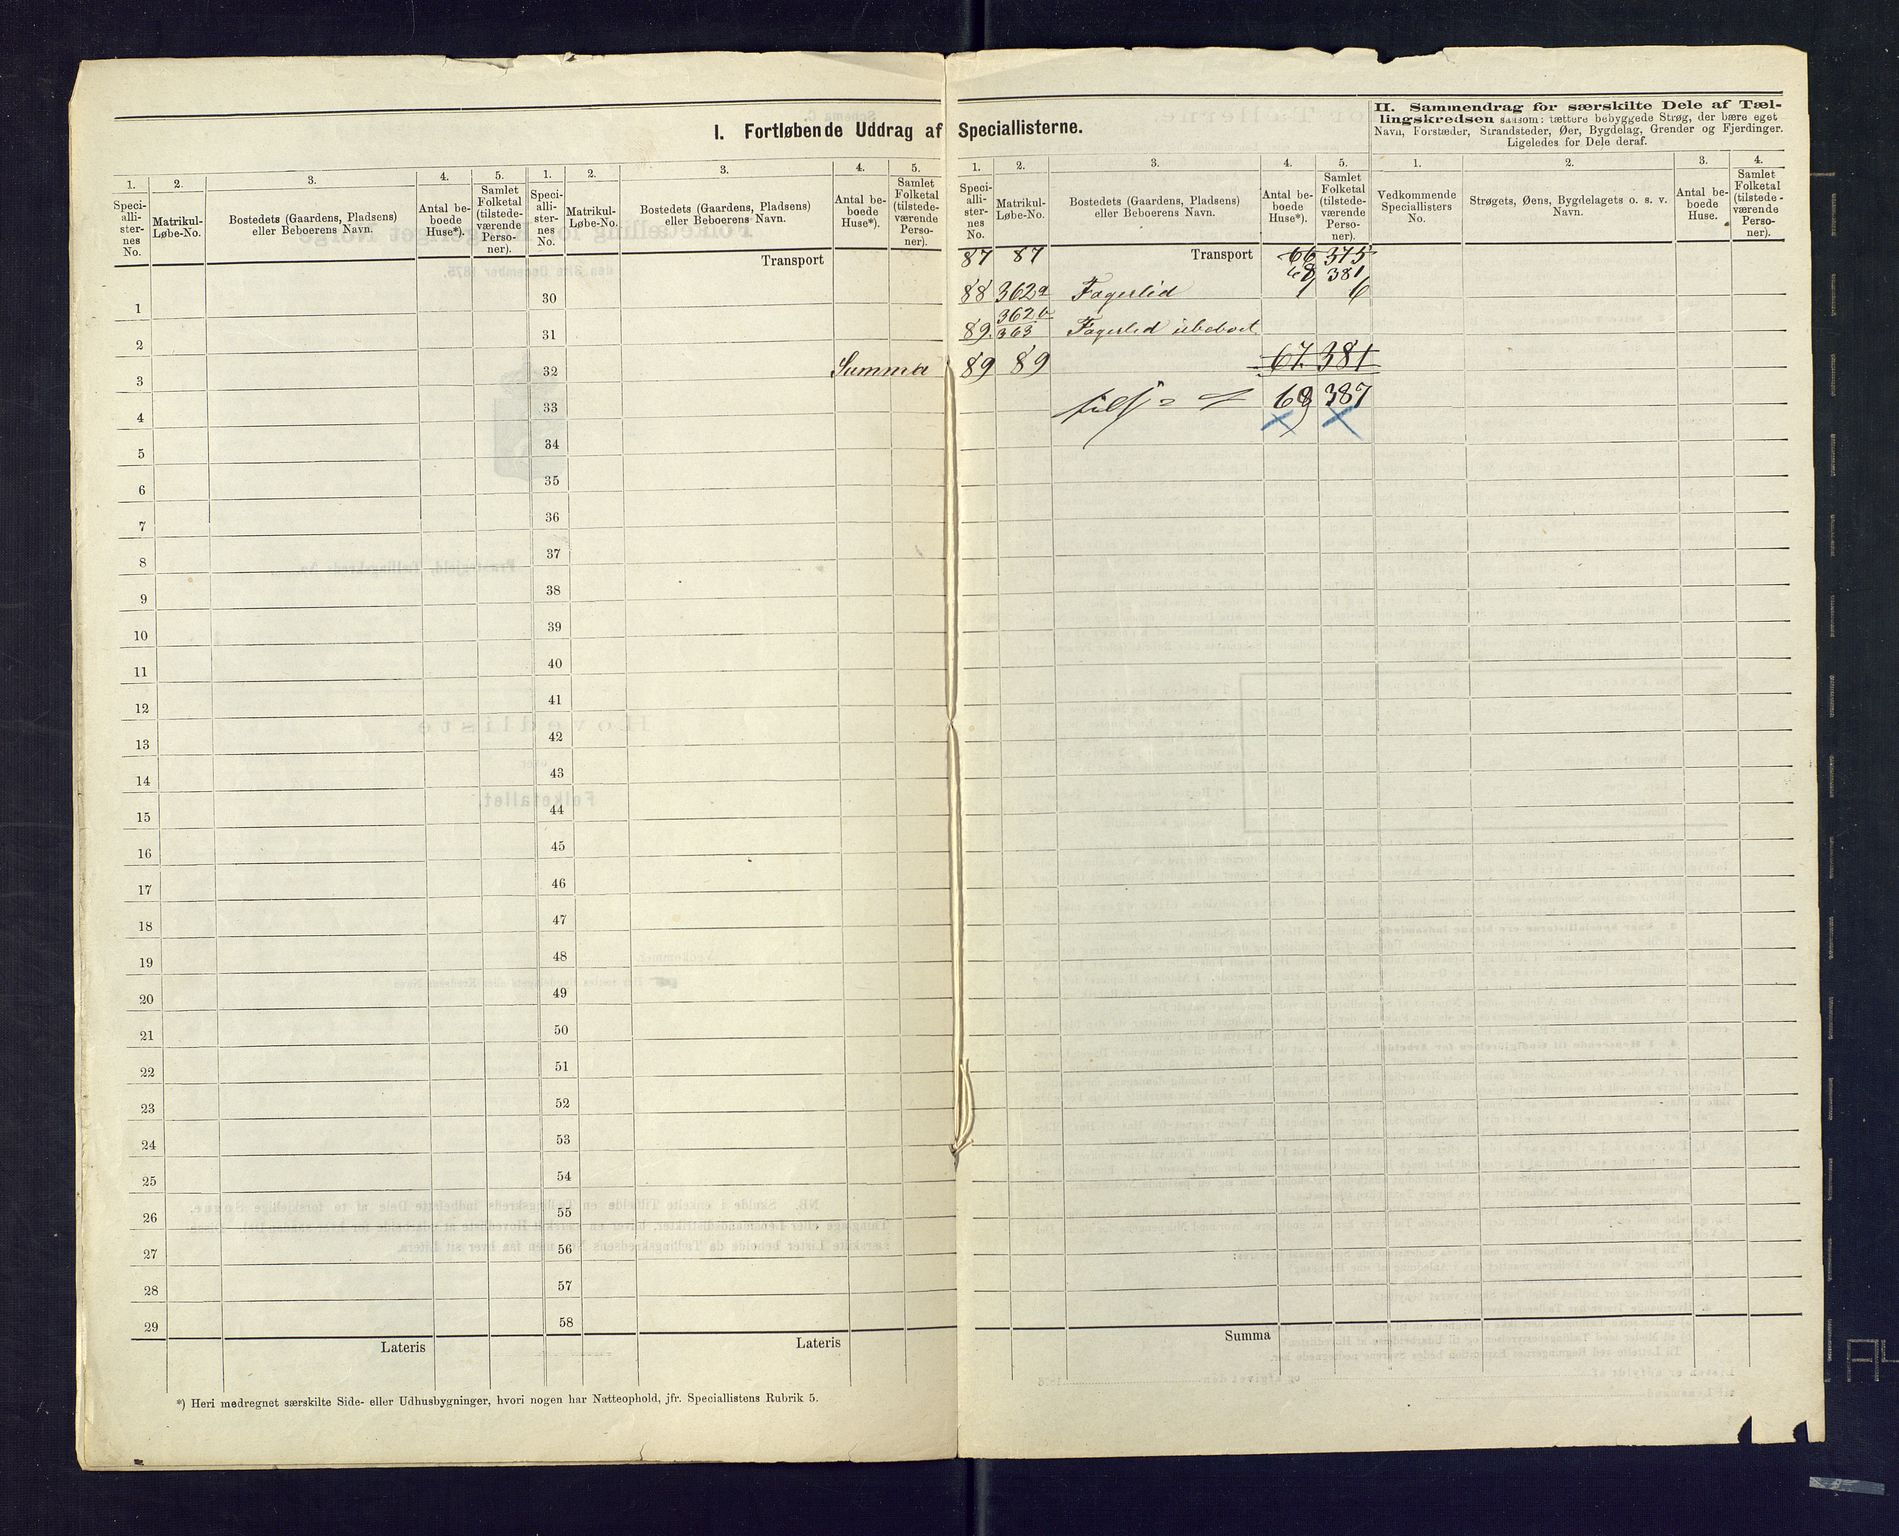 I. Fortløbende Uddrag af Speciallisterne.
II. Sammendrag for særskilte Dele af Tæl-
lingskredsen saasom: tættere bebyggede Strøg, der bære eget
Navn, Forstæder, Strandsteder, Øer, Bygdelag, Grender og Fjerdinger.
Ligeledes for Dele deraf.
1. 2. 3. 4. 5. 1. 2. 3. 4. 5. 1. 2. 3. 4. 5. 1. 2. 3. 4.
Speci-
alli-
ster-
nes
No.
Matrikul-
Løbe-No.
Bostedets (Gaardens, Pladsens)
eller Beboerens Navn.
Antal be-
boede
Huse*).
Samlet
Folketal
(tilstede-
værende
Perso-
ner).
Speci-
alli-
ster-
nes
No.
Matrikul-
Løbe-No.
Bostedets (Gaardens, Pladsens)
eller Beboerens Navn.
Antal be-
boede
Huse*).
Samlet
Folketal
(tilstede-
værende
Perso-
ner).
Speci-
alli-
ster-
nes
No.
Matrikul-
Løbe-No.
Bostedets (Gaardens, Pladsens)
eller Beboerens Navn.
Antal be-
boede
Huse*).
Samlet
Folketal
(tilstede-
værende
Perso-
ner).
Vedkommende
Speciallisters
No.
Strøgets, Øens, Bygdelagets o. s. v.
Navn.
Antal be-
boede
Huse.
Samlet
Folketal
(tilstede-
værende
Perso-
ner).
Transport
1
2
3
4
5
6
7
8
9
10
11
12
13
14
15
16
17
18
19
20
21
22
23
24
25
26
27
28
29
Lateris
30
31
32
33
34
35
36
37
38
39
40
41
42
43
44
45
46
47
48
49
50
51
52
53
54
55
56
57
58
Lateris
87 87 Transport 66 375
68 381
88 362a Fagerlid 1 6
362b
89. 363 Fagerlid ubeboet
Summa 89 89 67. 381
69 387
Summa
*) Heri medregnet særskilte Side- eller Udhusbygninger, hvori nogen har Natteophold, jfr. Speciallistens Rubrik 5.